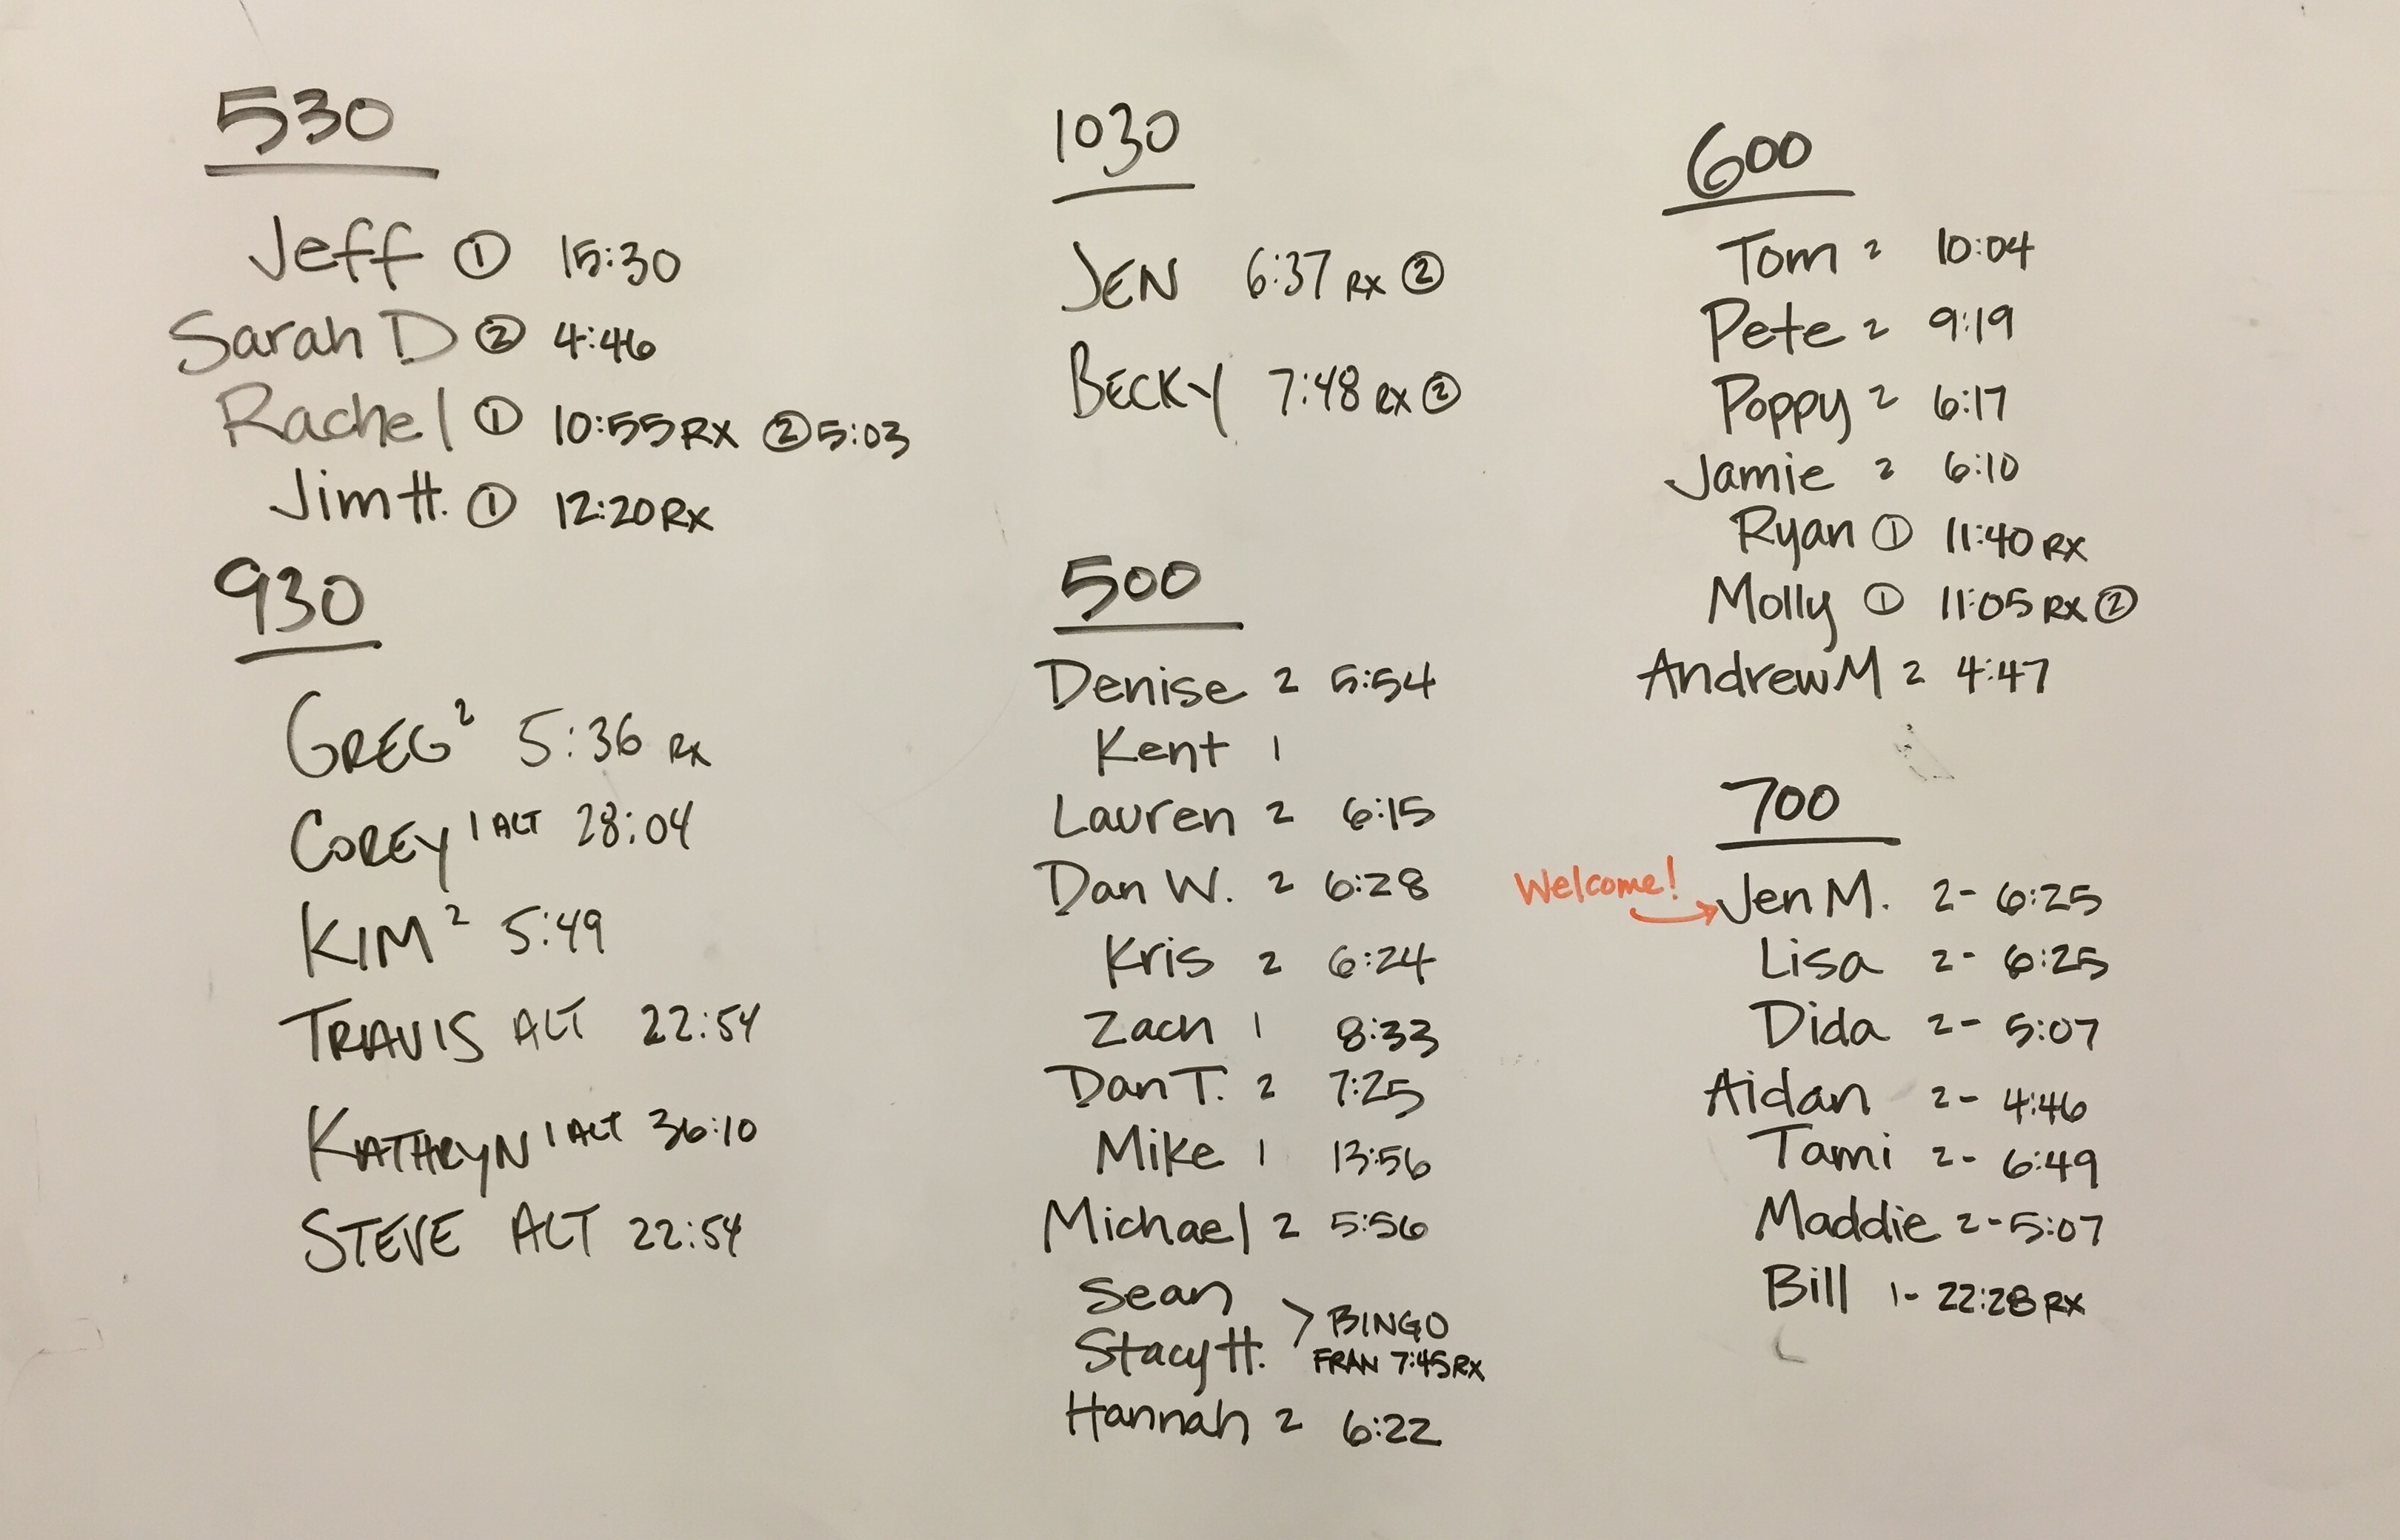 530
Jeff ① 15:30
Sarah D ② 4:46
Rachel ① 10:55 RX ② 5:03
Jim H. ① 12:20 RX
930
GREG 2 5:36 RX
COREY 1 ALT 28:04
KIM 2 5:49
TRAVIS ALT 22:54
KATHRYN 1 ALT 36:10
STEVE ALT 22:54
1030
JEN 6:37 RX ②
BECKY 7:48 RX ②
500
Denise 2 5:54
Kent 1
Lauren 2 6:15
Dan W. 2 6:28
Kris 2 6:24
Zach 1 8:33
Dan T. 2 7:25
Mike 1 13:56
Michael 2 5:56
Sean
Stacy H. > BINGO
FRAN 7:45 RX
Hannah 2 6:22
600
Tom 2 10:04
Pete 2 9:19
Poppy 2 6:17
Jamie 2 6:10
Ryan ① 11:40 RX
Molly ① 11:05 RX ②
Andrew M 2 4:47
700
Welcome! → Jen M. 2- 6:25
Lisa 2- 6:25
Dida 2- 5:07
Aidan 2- 4:46
Tami 2- 6:49
Maddie 2- 5:07
Bill 1- 22:28 RX